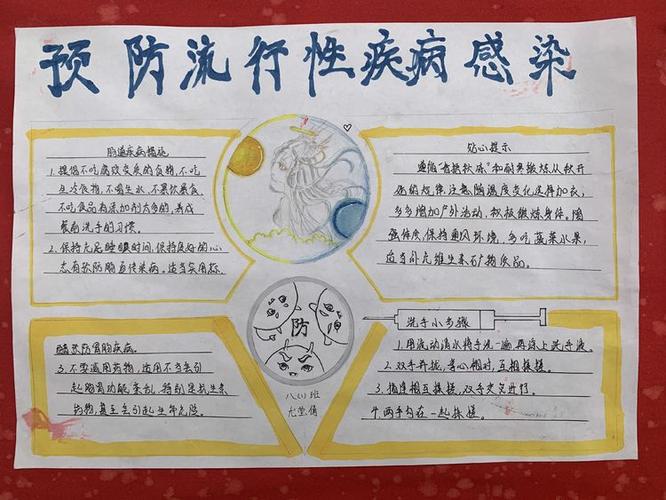 预防流行性疾病感染
肠道疾病措施
1.提倡不吃腐败变质的食物,不吃
生冷食物,不喝生水,不暴饮暴食
不吃食品有添加剂太多的,养成
餐前洗手的习惯。
2.保持充足睡眠时间,保持良好的心
态有效防肠道传染病。适当采用
醋预防胃肠疾病。
3.不要滥用药物,滥用不当会引
起肠胃功能紊乱,特别是抗生素
药物,甚至会引起生命危险。
贴心提示
遵循"春捂秋冻"和耐寒锻炼从秋开
始的规律,注意随温度变化选择加衣,
多多增加户外活动,积极锻炼身体,增
强体质,保持通风环境,多吃蔬菜水果,
适当补充维生素矿物质品。
洗手小步骤
1.用流动清水将手洗一遍再涂上洗手液。
2.双手并拢,掌心相对,互相揉搓。
3.指缝相互揉搓,双手交叉进行。
4.两手勾在一起揉搓。
防
八(1)班